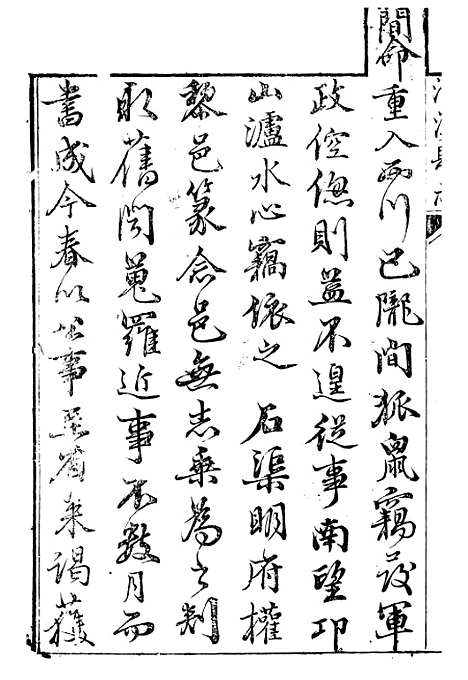 簡命重入西川已隴間狐鼠竊發軍
政倥偬則益不遑從事南望邛
山瀘水心竊依之 石渠明府權
黎邑篆念邑無志乘為之刿
取舊聞蒐羅近事不數月而
書成今春以公事至省來謁獲